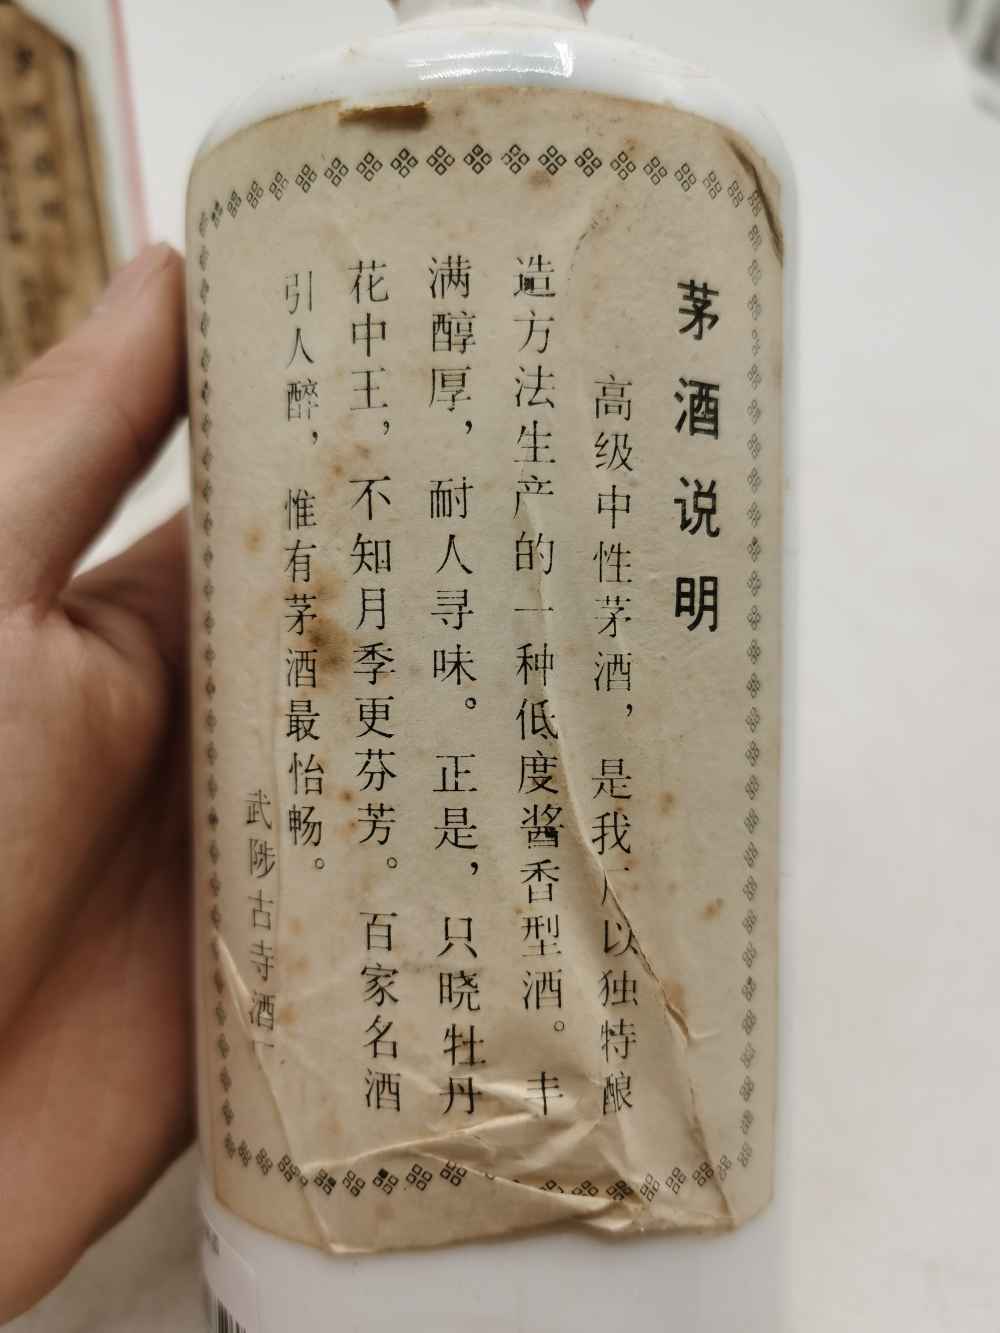 茅酒说明
高级中性茅酒，是我厂以独特酿
造方法生产的一种低度酱香型酒。丰
满醇厚，耐人寻味。正是，只晓牡丹
花中王，不知月季更芬芳。百家名酒
引人醉，惟有茅酒最怡畅。
武陟古寺酒